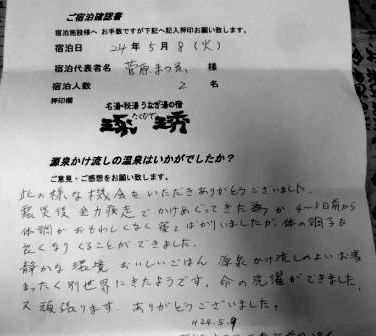 ご宿泊確認書
宿泊施設様へ お手数ですが下記へ記入押印お願い致します。
宿泊日 24年 5月 8 (火)
宿泊代表者名 菅原まつ 様
宿泊人数 2 名
押印欄
名湯・秘湯 うなぎ湯の宿
琢ひで 琢秀
源泉かけ流しの温泉はいかがでしたか?
ご意見・ご感想をお願い致します。
此の様な機会をいただきありがとうございました。
震災後 全力疾走でかけめぐってきた為か 4〜5日前から
体調がおもわしくなく 寝てばかりいましたが、体の調子も
良くなりくることができました。
静かな環境 おいしいごはん 源泉かけ流しのよいお湯
まったく別世界にきたようです。命の洗濯ができました。
又頑張ります ありがとうございました。
H24.5.9